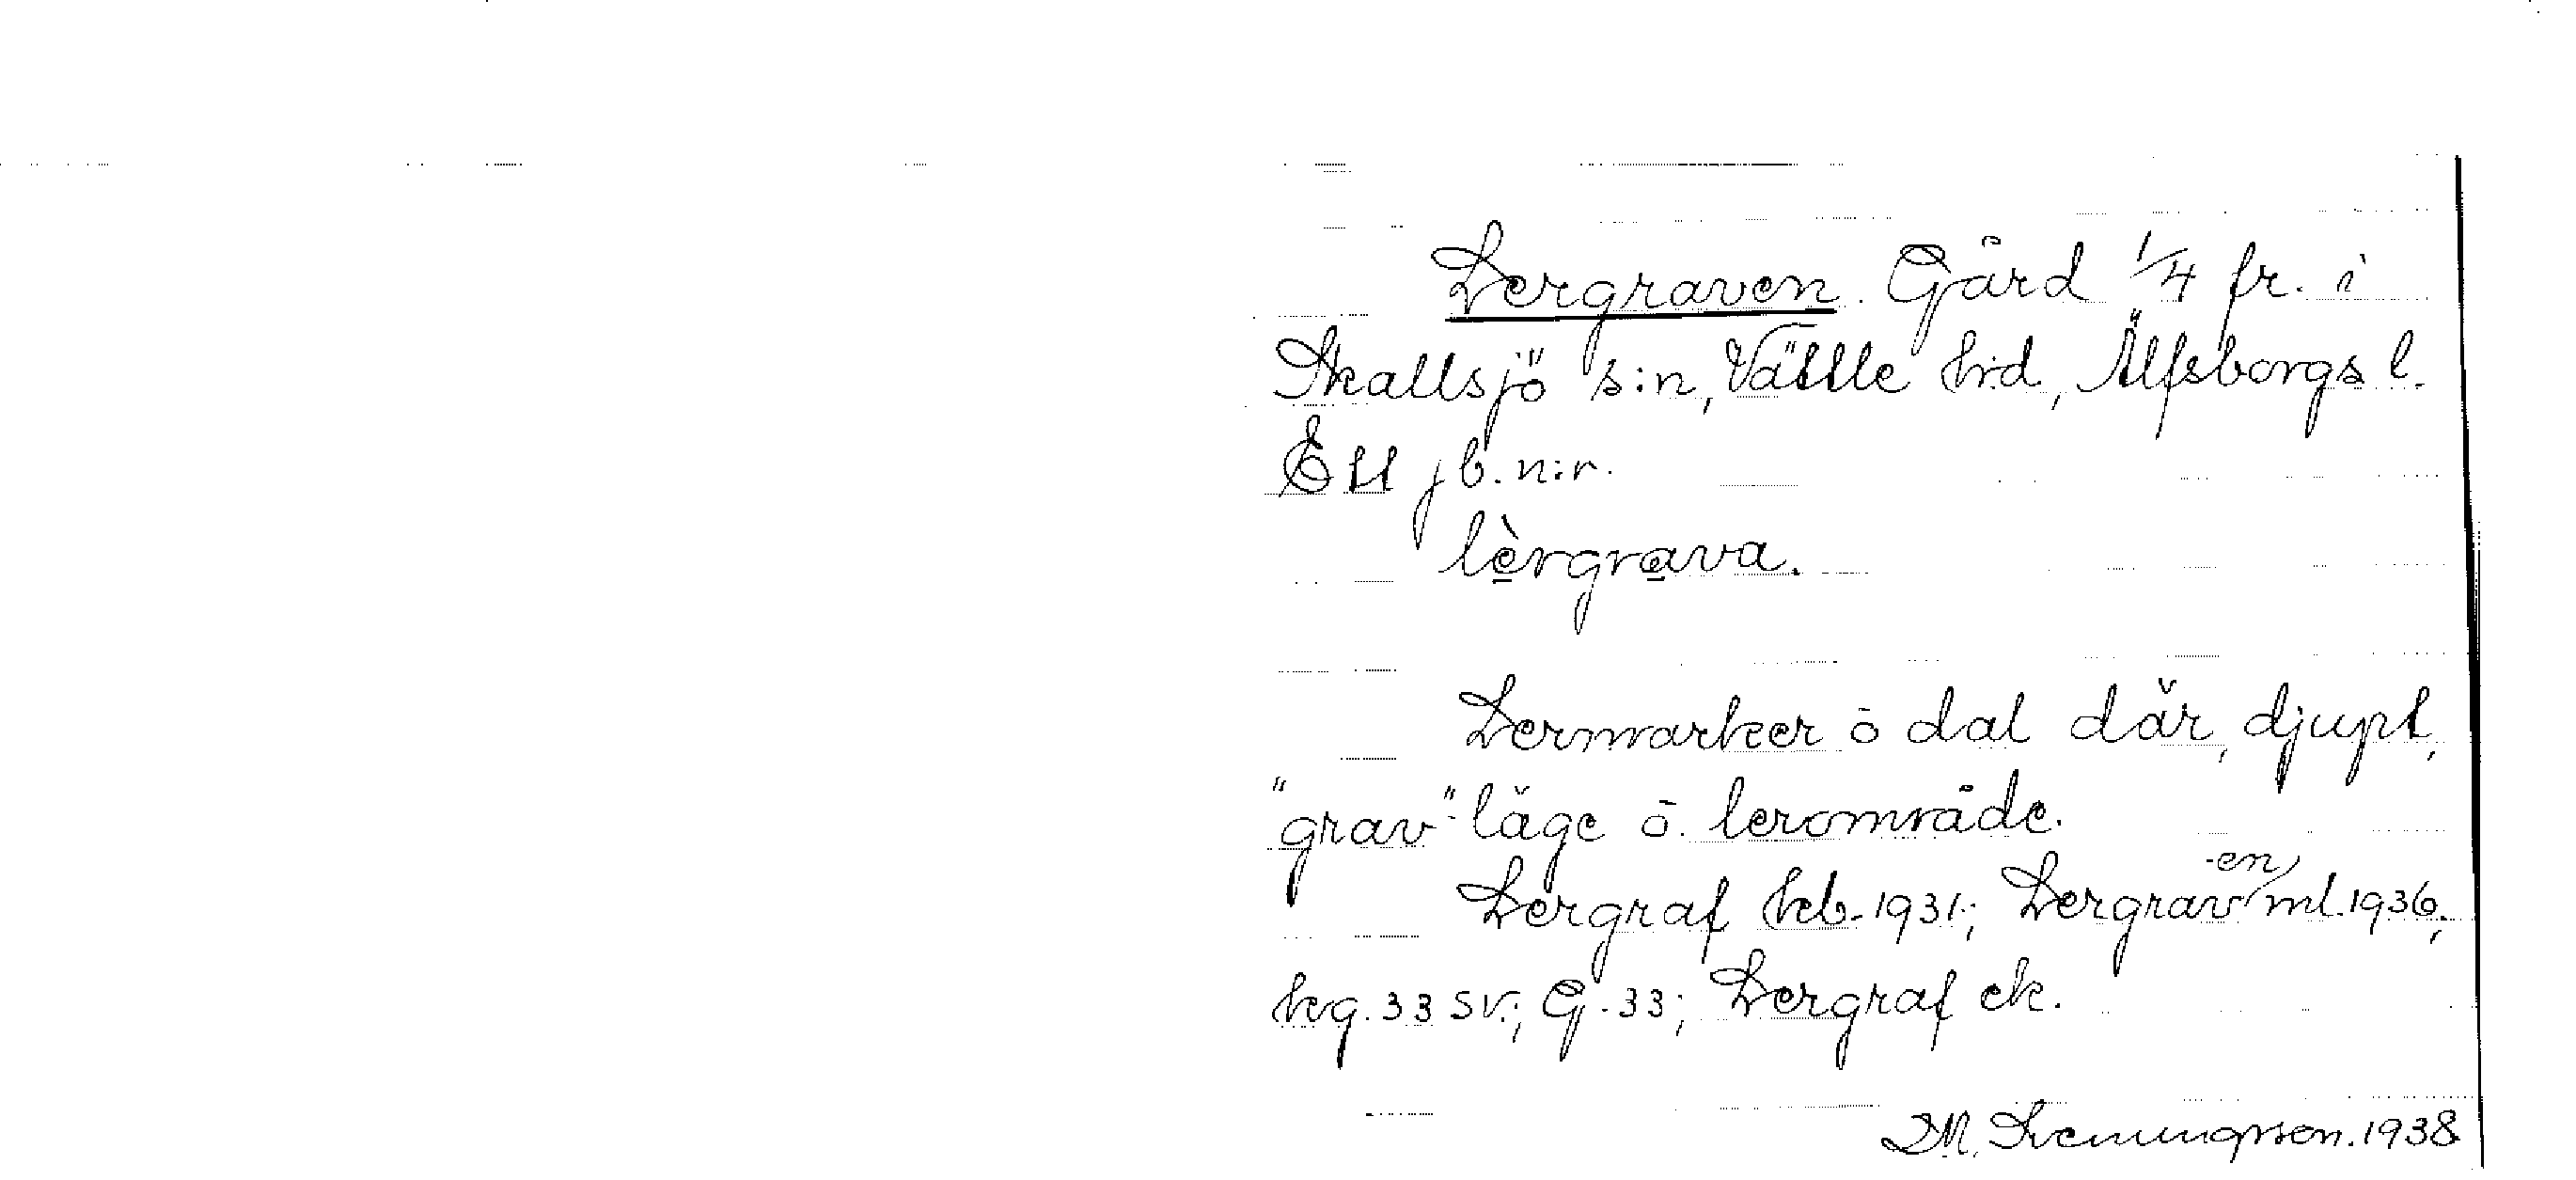 Lergraven. Gård 1/4 fr. i
Skallsjö s:n, Vättle hrd, Älfsborgs l.
Ett jb. n:r.
lèrgrava.
Lermarker o dal där, djupt,
"grav"-läge o. lerområde.
Lergraf hkb. 1931; Lergrav-en ml. 1936,
kvg. 33 SV.; G. 33; Lergraf ek.
D.M. 1938